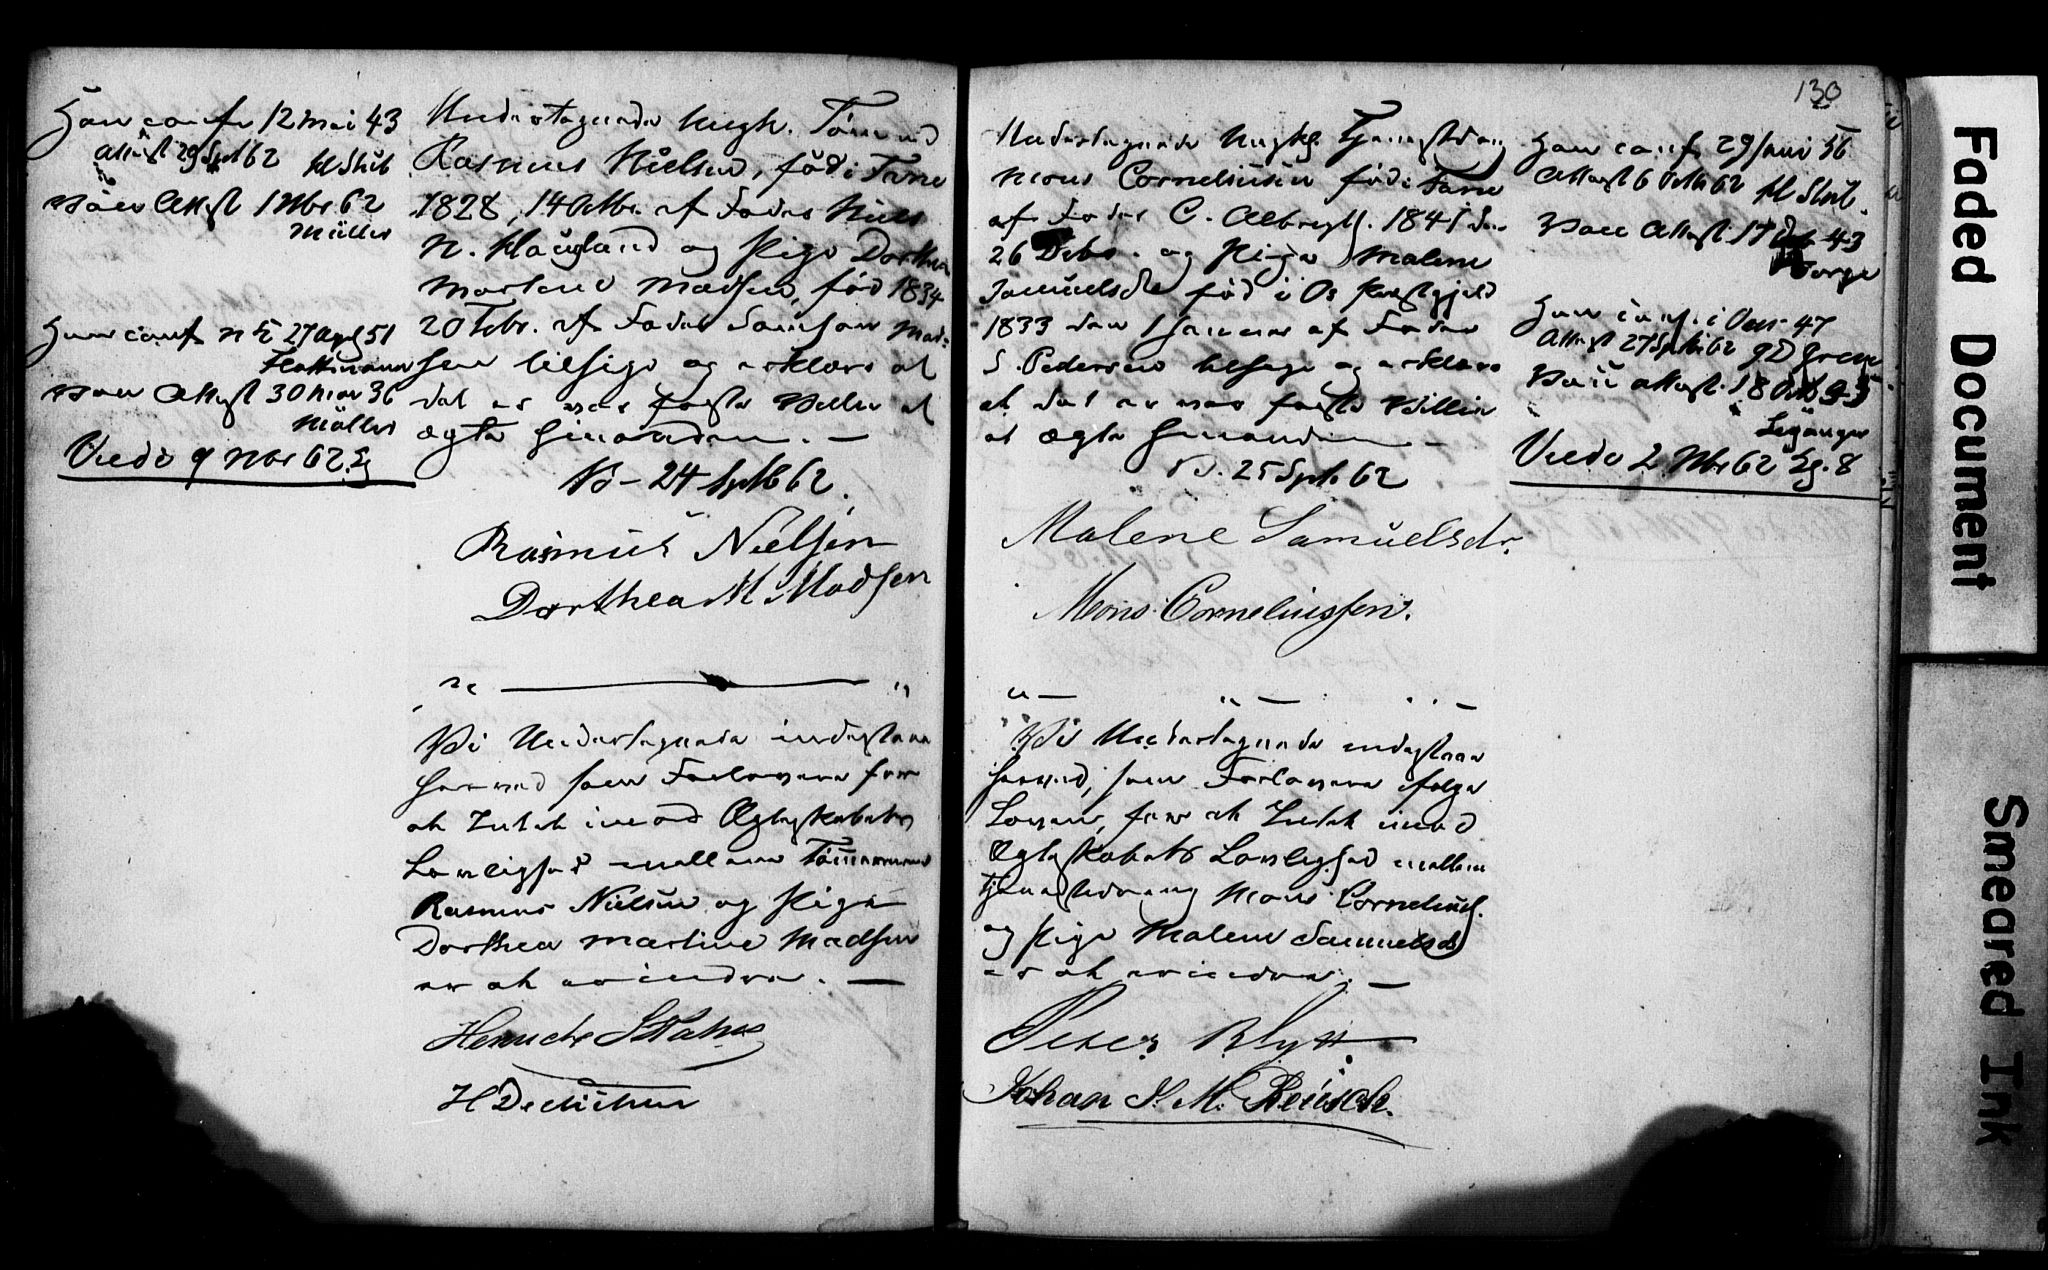 Han conf 12 Mai 43
Attest 29 Sptb 62 Kl Stub
Vacc Attest 1 Nbr 62
Müller
Hun conf n K 27 Apl 51
Vacc Attest 30 nov 36
Müller
Viede 9 Nbr 62
Undertegnede Ungk. Tømmd
Rasmus Nielsen, född i Fane
1828, 14 Octbr. af Fader Niels
N. Haugland og Pige Dorthea
Martine Madsen, född 1834
20 Febr. af Fader Samson Mad-
sen tilsige og erklære at
det er vor faste Villie at
ægte hinanden. —
B – 24 Sptb 62.
Rasmus Nielsen
Dorthea M. Madsen
Vi Undertegnede indestaae
herved som Forlovere for
at Intet imod Ægteskabets
Lovlighed mellem Tømmermand
Rasmus Nielsen og Pige
Dorthea Martine Madsen
er at erindre. —
130
Undertegnede Ungkl. Tjenestdreng
Mons Corneliusen född i Fane
af Fader C. Albregts. 1841 den
26 Debr. og Pige Malene
Samuelsdr född i Os Præstgjeld
1833 den 1 Januar af Fader
S. Pedersen tilsige og erklære
at det er vor faste Villie
at ægte hinanden —
B. 25 Sptb 62
Malene Samuelsdr.
Mons Corneliussen.
Vi Undertegnede indestaae
herved, som Forlovere ifølge
Loven, for at Intet imod
Ægteskabets Lovlighed mellem
Tjenestedreng Mons Cornelius.
og Pige Malene Samuelsd
er at erindre. —
Peter Blytt
Johan K. M. Reusch.
Han conf 29 Juni 56
Attest 6 Octb 62 Kl Stub.
Vacc Attest 17 43
Hun conf. i Oes 47
Attest 27 Sptb 62
Vacc Attest 18
Viede 2 Nbr 62 8
Faded Document
Smeared Ink